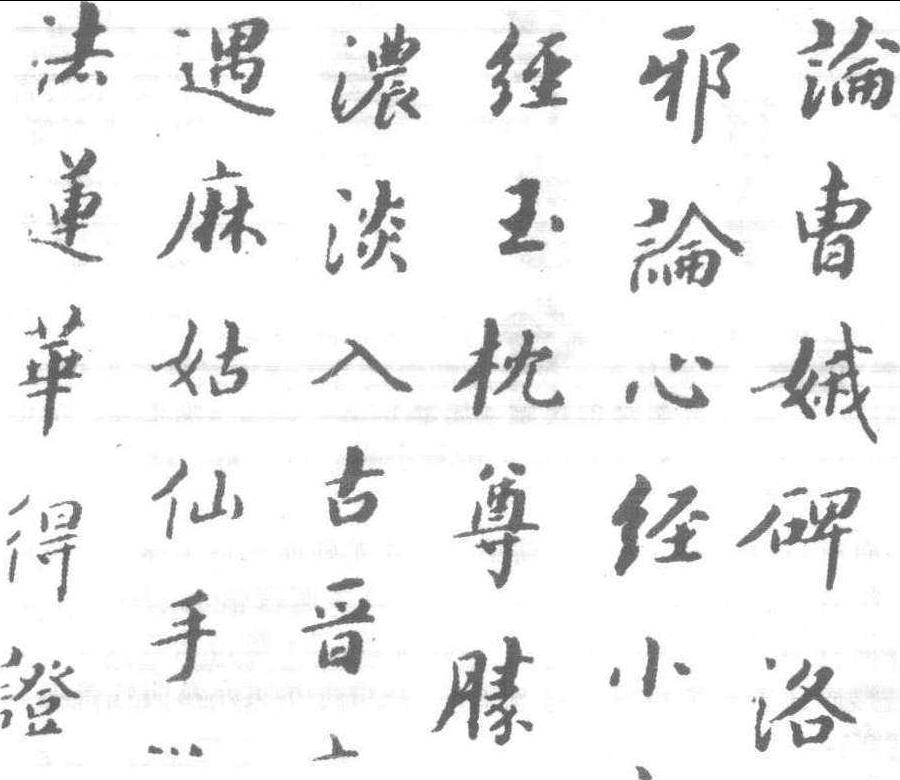 論曹娥碑洛
邪論心經小
經玉枕尊勝
濃淡入古晉
遇麻姑仙手
法蓮華得證